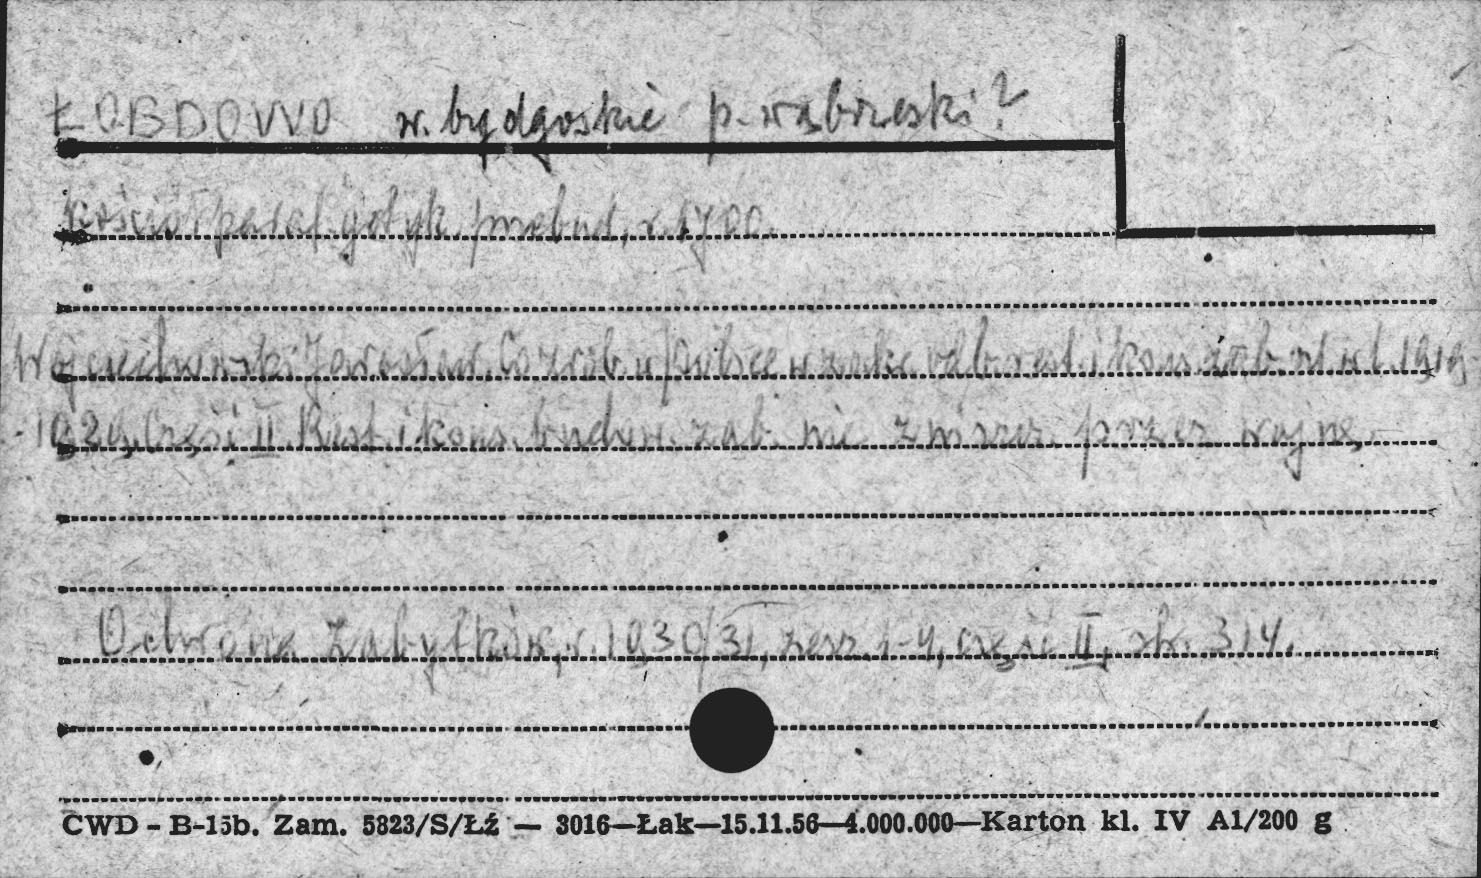 ŁOBDOWO w. bydgoskie p. wąbrzeski?
Kościół paraf. gotyk. przebud. r. 1700.
Wojciechowski Jarosław. Co zrob. w Polsce w zakr. odb. rest. i kons. zab. szt. w l. 1919
- 1929. Część II Rest. i kons. budow. zab. nie zniszcz. przez wojnę.
Ochrona Zabytków, r. 1930/31, zesz. 1-4, część II, str. 314.
CWD - B-15b. Zam. 5823/S/Łź — 3016—Łak—15.11.56—4.000.000—Karton kl. IV A1/200 g